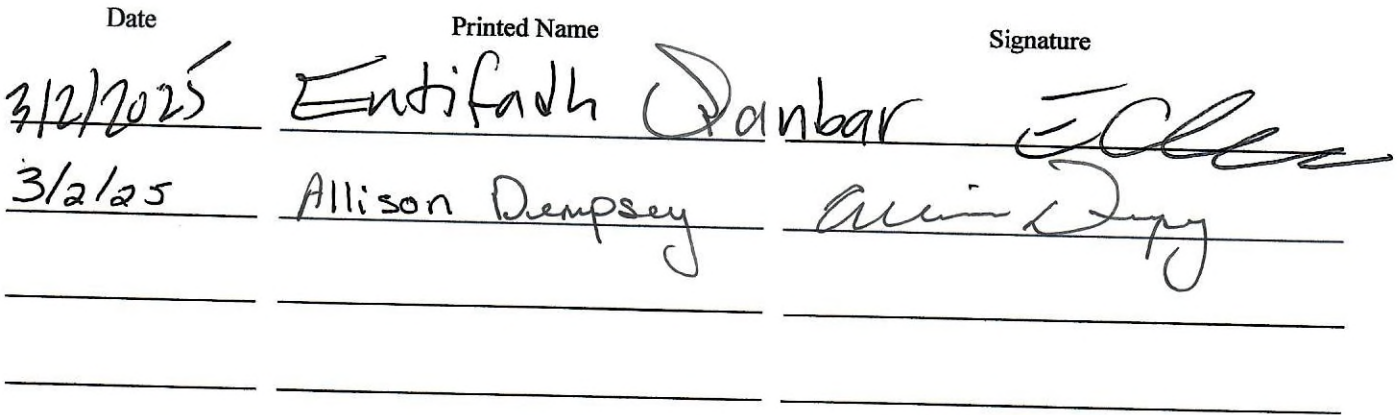 Date Printed Name Signature
3/2/2025 Entifadh Qanbar
3/2/25 Allison Dempsey